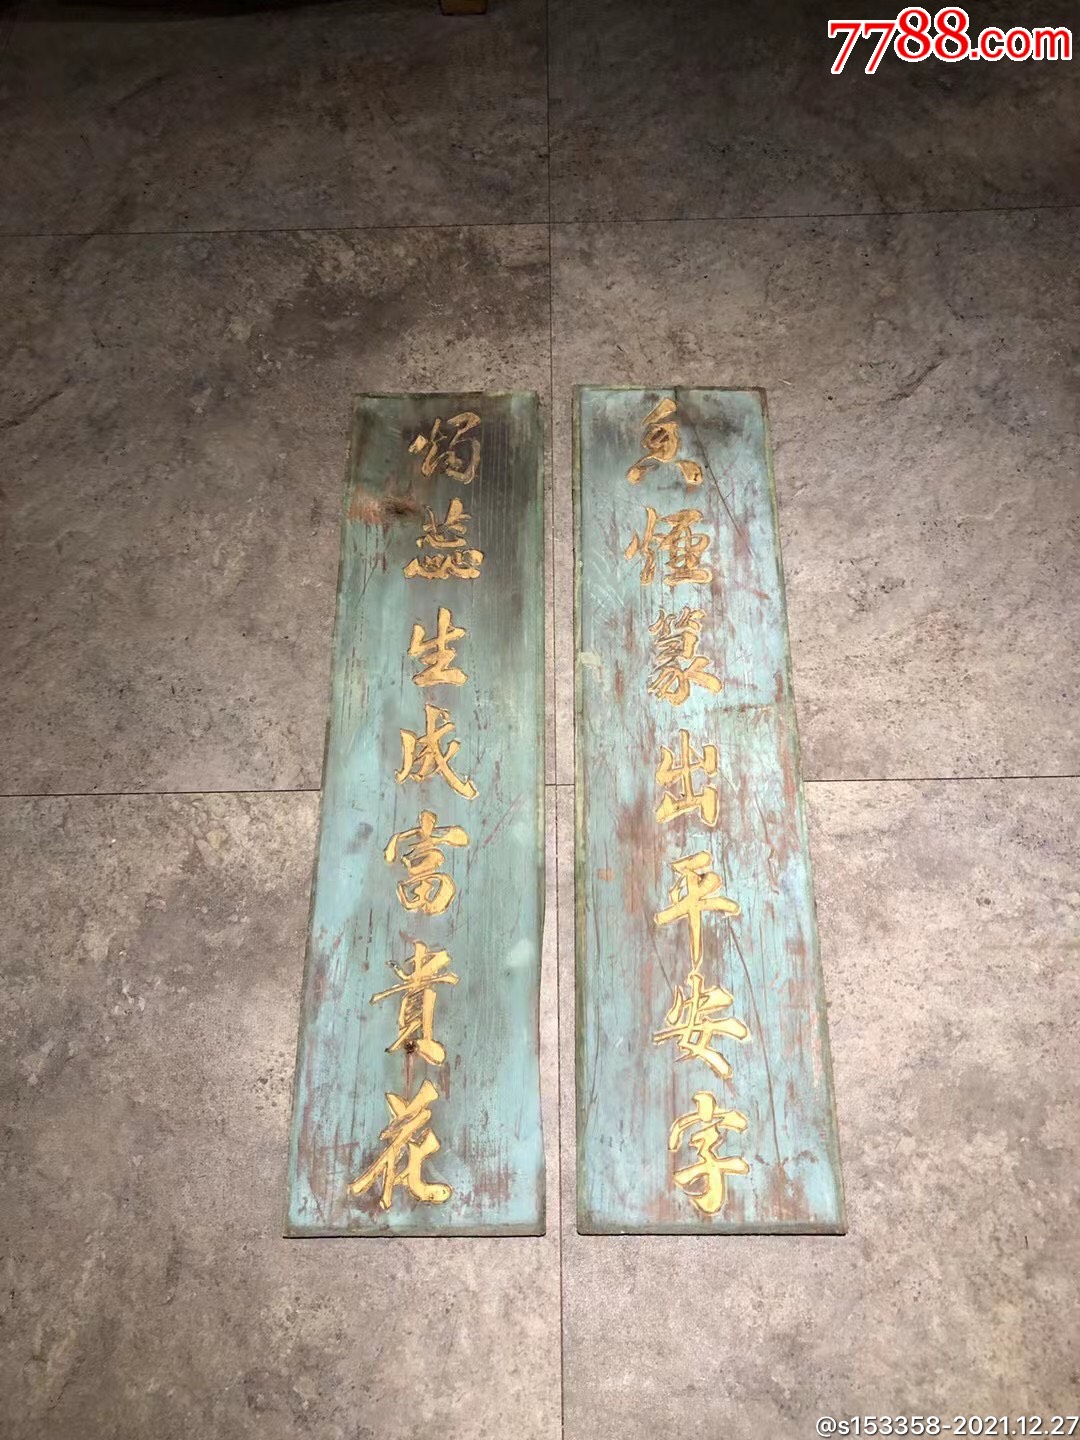 7788.com
香煙篆出平安字
燭蕊生成富貴花
@s153358-2021.12.27